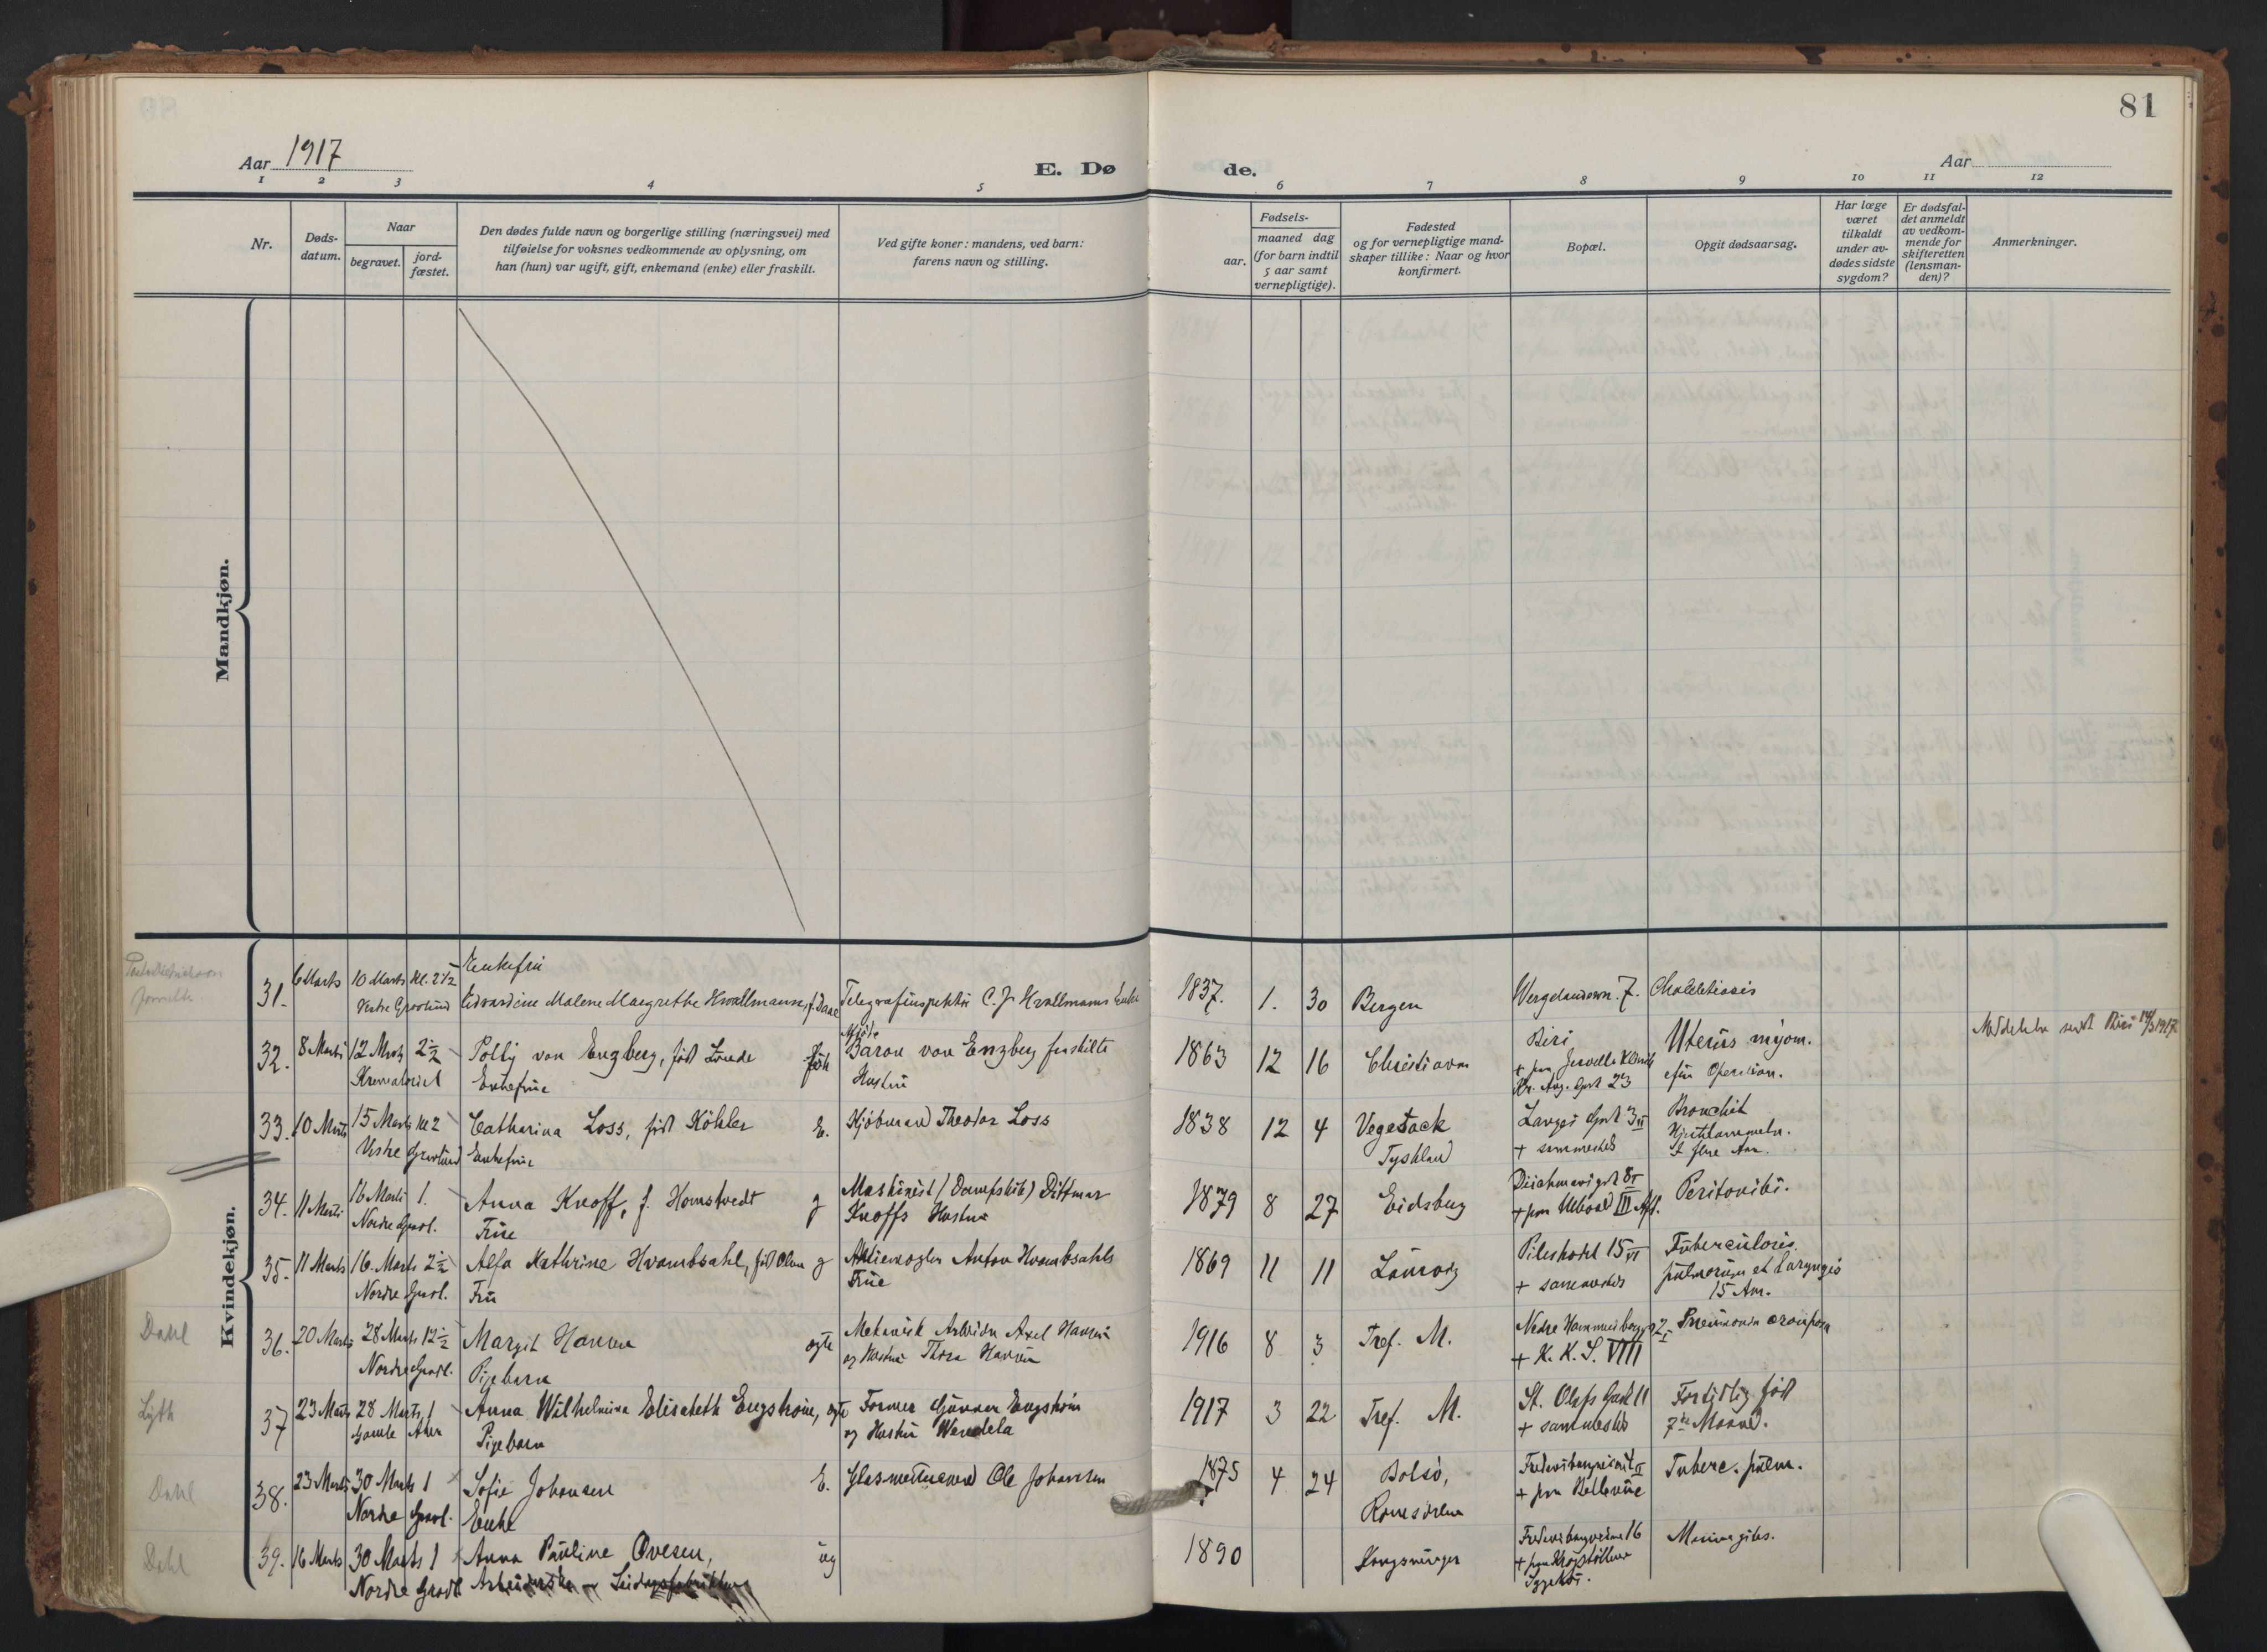 81
Aar 1917
E. Dø de.
Aar
1 2 3 4 5 6 7 8 9 10 11 12
Nr.
Døds-
datum.
Naar
begravet.
jord-
fæstet.
Den dødes fulde navn og borgerlige stilling (næringsvei) med
tilføielse for voksnes vedkommende av oplysning, om
han (hun) var ugift, gift, enkemand (enke) eller fraskilt.
Ved gifte koner: mandens, ved barn:
farens navn og stilling.
Fødsels-
aar.
maaned dag
(for barn indtil
5 aar samt
vernepligtige).
Fødested
og for vernepligtige mand-
skaper tillike: Naar og hvor
konfirmert.
Bopæl.
Opgit dødsaarsag.
Har læge
været
tilkaldt
under av-
dødes sidste
sygdom?
Er dødsfal-
det anmeldt
av vedkom-
mende for
skifteretten
(lensman-
den)?
Anmerkninger.
Mandkjøn.
Kvindekjøn.
Enkefru
31. 6 Marts 10 Marts Kl. 2 1/2 Edvardine Malene Margrethe Knallmann, f. Daae Telegrafinspektør C. J. Knallmanns Enke 1837. 1. 30 Bergen Wergelandsvn. 7. Cholelitiasis
Vestre Gravlund
32. 8 Marts 12 Marts 2 1/2 Polly von Engberg, født Lunde Baron von Enzberg fraskilte 1863 12 16 Christiania Biri Uterus myom.
Krematoriet Enkefrue Hustru + paa Jervells Klinik efter Operation.
Kr. Aug. Gt 23
33. 10 Marts 15 Marts Kl 2 Catharina Loss, født Köhler E. Kjøbmand Theodor Loss 1838 12 4 Vegesack Langes Gt 3 II Bronchit
Vestre Gravlund Enkefrue Tyskland + sammesteds Hjertelammelse.
34. 11 Marts 16 Marts 1. Anna Knoff, f. Homstvedt g Maskinist (Dampskib) Dittmar 1879 8 27 Eidsberg + paa Ulleval III Afd. Peritonitis.
Nordre Gravl. Frue Knoffs Hustru
35. 11 Marts 16. Marts 2 1/2 Alfa Kathrine Hvambsahl, født Olsen g Aktiemægler Anton Hvambsahls 1869 11 11 Larvig Pilestrædet 15 VI Tuberculosis
Nordre Gravl. Fru Frue + sammesteds pulmonum et laryngis
15 Aar.
Dahl 36. 20 Marts 28 Marts 12 1/2 Margit Hansen ægte Mekanik Arbeider Axel Hansen 1916 8 3 Tref. M. Nedre Hammersborg gt 2 I Pneumonia crouposa
Nordre Gravl. Pigebarn og Hustru Thora Hansen + K. K. S. VIII
Lyth 37 23 Marts 28 Marts, 1 Anna Wilhelmina Elisabeth Engstrøm, ægte Former Gunnar Engstrøm 1917 3 22 Tref. M. St. Olafs Gade 11 Fortidlig født
Gamle Aker Pigebarn og Hustru Wendela + sammesteds 7de Maaned.
Dahl 38. 23 Marts 30 Marts 1 Sofie Johansen E. Glasmester Ole Johansen 1875 4 24 Bolsø, + paa Bellevue Tuberc. pulm.
Nordre Gravl. Enke Romsdalen
Dahl 39. 16 Marts 30 Marts 1 Anna Pauline Ovesen, ug 1890 Kongsvinger Fredensborgveien 16 Meningitis.
Nordre Gravl. Arbeiderske + paa Krogstøtten
Sygehus.